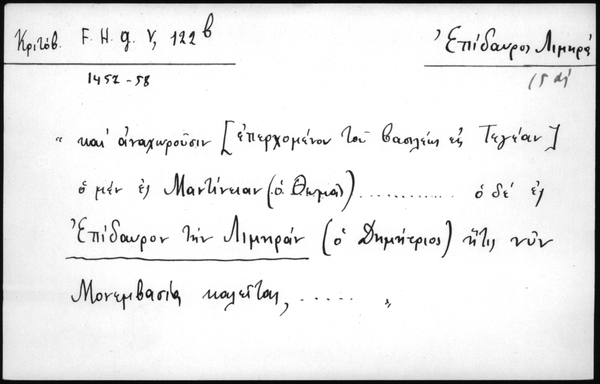 Κριτόβ. F. H. g. V, 122 b
Ἐπίδαυρος Λιμηρά
1452-58
15 αἰ
" καὶ ἀναχωροῦσιν [ἐπερχομένου τοῦ βασιλέως εἰς Τεγέαν]
ὁ μὲν ἐς Μαντίνειαν (ὁ Θωμᾶς) ............ ὁ δὲ ἐς
Ἐπίδαυρον τὴν Λιμηράν (ὁ Δημήτριος) ἥτις νῦν
Μονεμβασία καλεῖται, ..... "